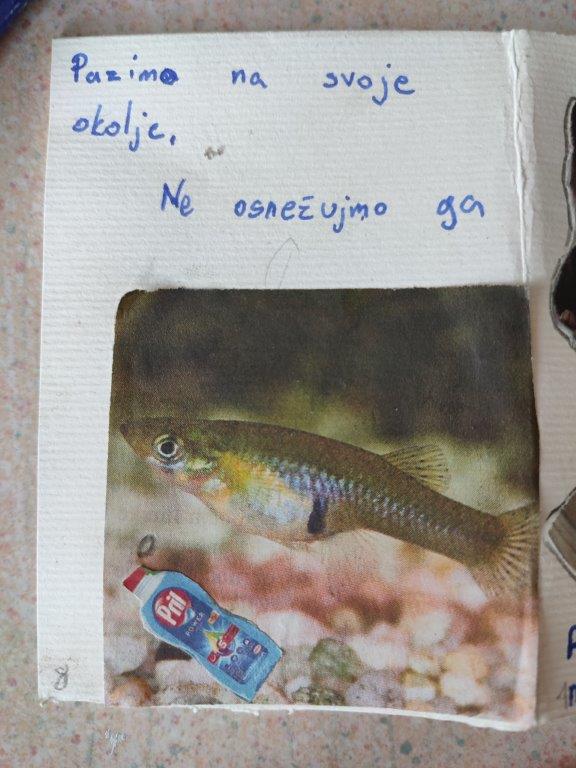 Pazimo na svoje
okolje.
Ne osnežujmo ga
Pril
POWER
8